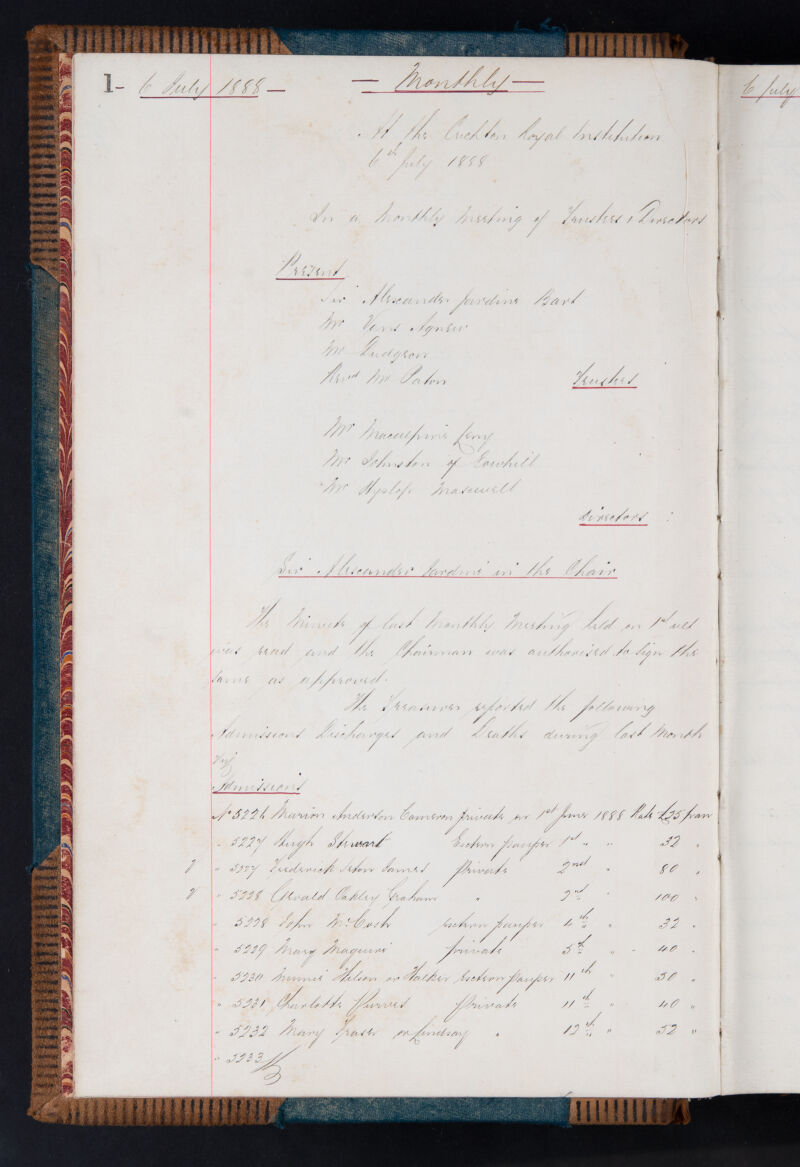 1- 6 July 1888 — — Monthly —
6 July
At the Crichton Royal Institution
6th July 1888
In a Monthly Meeting of Trustees & Directors
Present
Sir Alexander Jardine Bart
Mr Vans Agnew
Mr Dudgeon
Revd Mr Paton Trustees
Mr Macalpine Leny
Mr Johnston of Cowhill
Mr Hyslop Maxwell
Directors :
Sir Alexander Jardine in the Chair
The Minute of last Monthly Meeting held on 1st ult
was read and the Chairman was authorised to sign the
same as approved.
The Treasurer reported the following
Admissions Discharges and Deaths during last Month
viz
Admissions
No 5226 Marion Anderson Cameron private on 1st June 1888 Rate £25 p ann
" 5227 Hugh Stewart pauper 1st " " 32 "
" 5227 Frederick James Private 2nd " 80 "
" 5228 Oakley Graham " 2nd 100 "
" 5228 John McCosh pauper 4th " 32 "
" 5229 Mary Maguire private 5th " - 40 "
" 5230 Minnie Wilson or Walker pauper 11th " 30 "
" 5231 Charlotte private 11th " 40 "
" 5232 Mary Fraser or Lindsay " 12th " 52 "
" 5233